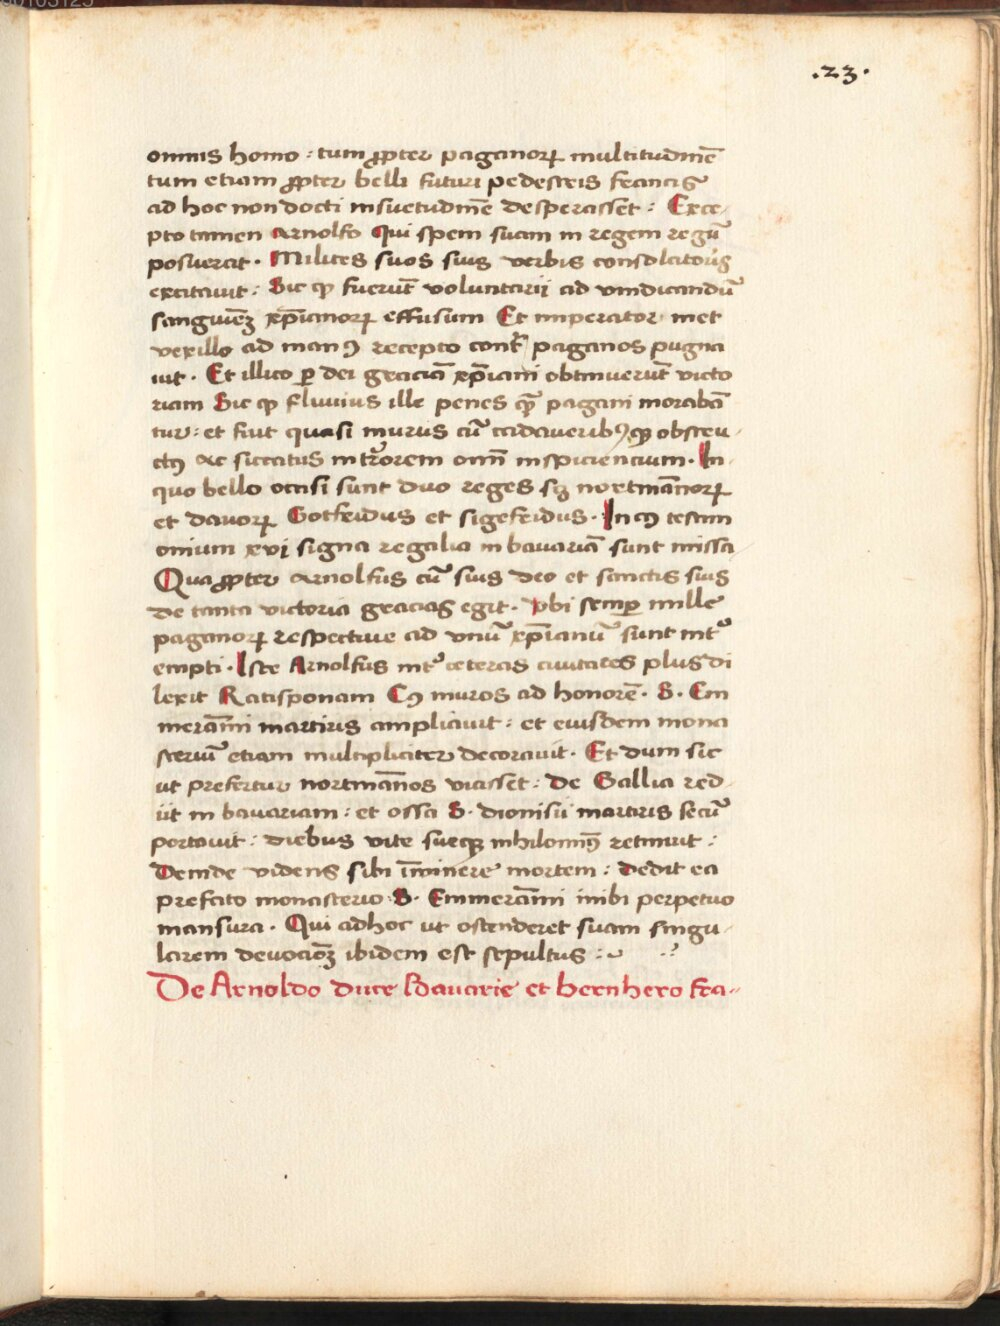 .23.
omnis homo : tum ꝓpter paganoꝝ multitudinē
tum etiam ꝓpter belli futuri pedestris francis
ad hoc non docti insuetudinē desperasset : Exce-
pto tamen Arnolfo Qui spem suam in regem regū
posuerat . Milites suos suis verbis consolatoriis
excitauit : Sic ꝙ fuerūt voluntarij ad vindicandū
sanguinēꝫ xp̄ianoꝝ effusum Et imperator met
vexillo ad manꝰ recepto contᷓ paganos pugna
uit . Et illico ꝑ dei graciā xp̄iani obtinuerūt victo
riam Sic ꝙ fluuius ille penes quē pagani morabā
tur : et fuit quasi murus cū cadaueribꝰꝙ obstru-
ctꝰ ac siccatus in tr̄orem omī inspiciencium . In
quo bello occisi sunt duo reges sꝫ nortmānoꝝ
et danoꝝ Gotfridus et sigefridus . In cꝰ testim
onium xvj signa regalia in bauariā sunt missa
Qua ꝓpter Arnolfus cū suis deo et sanctis suis
de tanta victoria gracias egit . Vbi semꝑ mille
paganoꝝ respectiue ad vnū xp̄ianū sunt intꝰ
empti . Iste Arnolfus intꝰ ceteras ciuitates plus di
lexit Ratisponam Cꝰ muros ad honorē . S . Em
merām̄i martiris ampliauit : et eiusdem mona
steriū etiam multipliciter decorauit . Et dum sic
ut prefertur nortmānos vicisset : de Gallia red-
iit in bauariam : et ossa S . dionisii martiris secū
portauit : diebus vite sueqꝫ nihilominꝰ retinuit :
Deinde videns sibi īminere mortem : dedit ea
prefato monasterio . S . Emmerāmi inibi perpetuo
mansura . Qui adhoc ut ostenderet suam singu-
larem deuocionēꝫ ibidem est sepultus :
De Arnoldo duce Bauarie et bernhero fra-